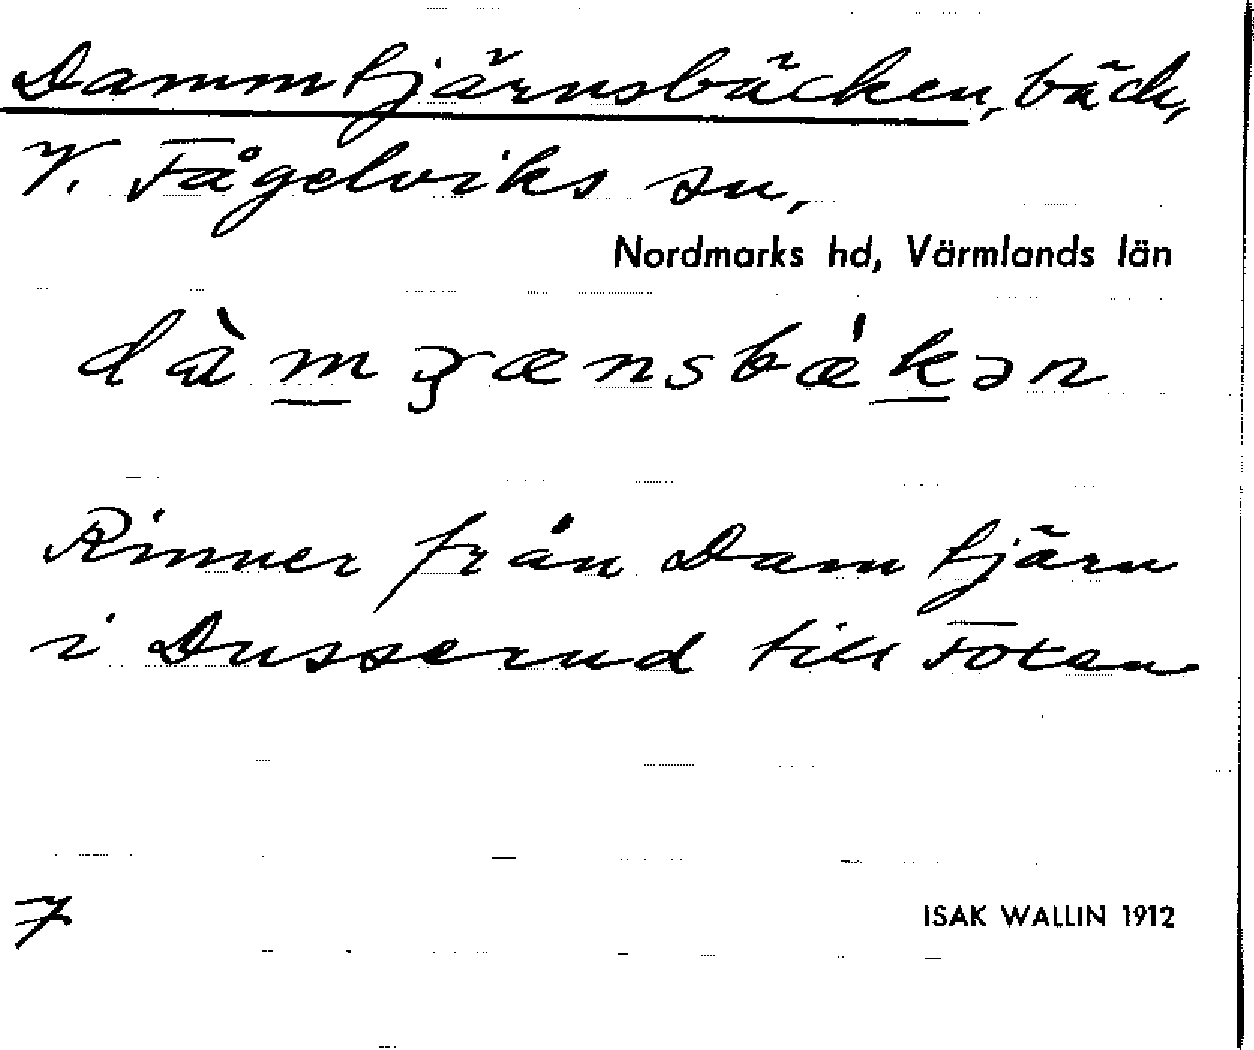 Dammtjärnsbäcken, bäck,
V. Fågelviks sn,
Nordmarks hd, Värmlands län
dàmʒænsbǽkən
Rinner från Damtjärn
i Dusserud till Foxen
7
ISAK WALLIN 1912